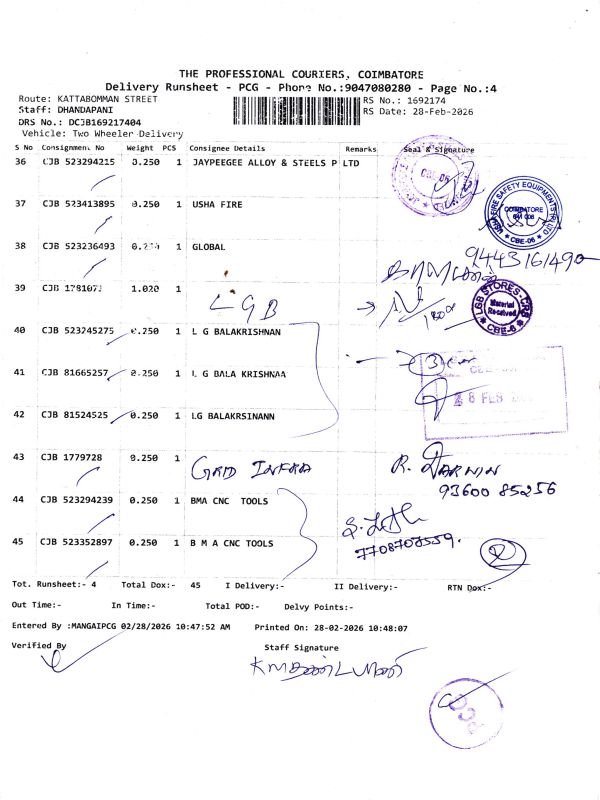 THE PROFESSIONAL COURIERS, COIMBATORE
Delivery Runsheet - PCG - Phone No.:9047080280 - Page No.:4
Route: KATTABOMMAN STREET
RS No.: 1692174
Staff: DHANDAPANI
RS Date: 28-Feb-2026
DRS No.: DCJB169217404
Vehicle: Two Wheeler Delivery
S No Consignment No Weight PCS Consignee Details Remarks Seal & Signature
36 CJB 523294215 0.250 1 JAYPEEGEE ALLOY & STEELS P LTD
37 CJB 523413895 0.250 1 USHA FIRE
USHA FIRE SAFETY EQUIPMENTS (P) LTD
COIMBATORE
641 006
CBE-06
38 CJB 523236493 1 GLOBAL
9443161490
39 CJB 1781073 1.020 1 LGB
LGB STORES-CRS
Material
Received
CBE-6
40 CJB 523245275 0.250 1 L G BALAKRISHNAN
41 CJB 81665257 0.250 1 L G BALA KRISHNAA
42 CJB 81524525 0.250 1 LG BALAKRSINANN
28 FEB
43 CJB 1779728 0.250 1 GRID INFRA R. DARWIN
93600 85256
44 CJB 523294239 0.250 1 BMA CNC TOOLS
45 CJB 523352897 0.250 1 B M A CNC TOOLS
Tot. Runsheet:- 4 Total Dox:- 45 I Delivery:- II Delivery:- RTN Dox:-
Out Time:- In Time:- Total POD:- Delvy Points:-
Entered By :MANGAIPCG 02/28/2026 10:47:52 AM Printed On: 28-02-2026 10:48:07
Verified By Staff Signature
PCG